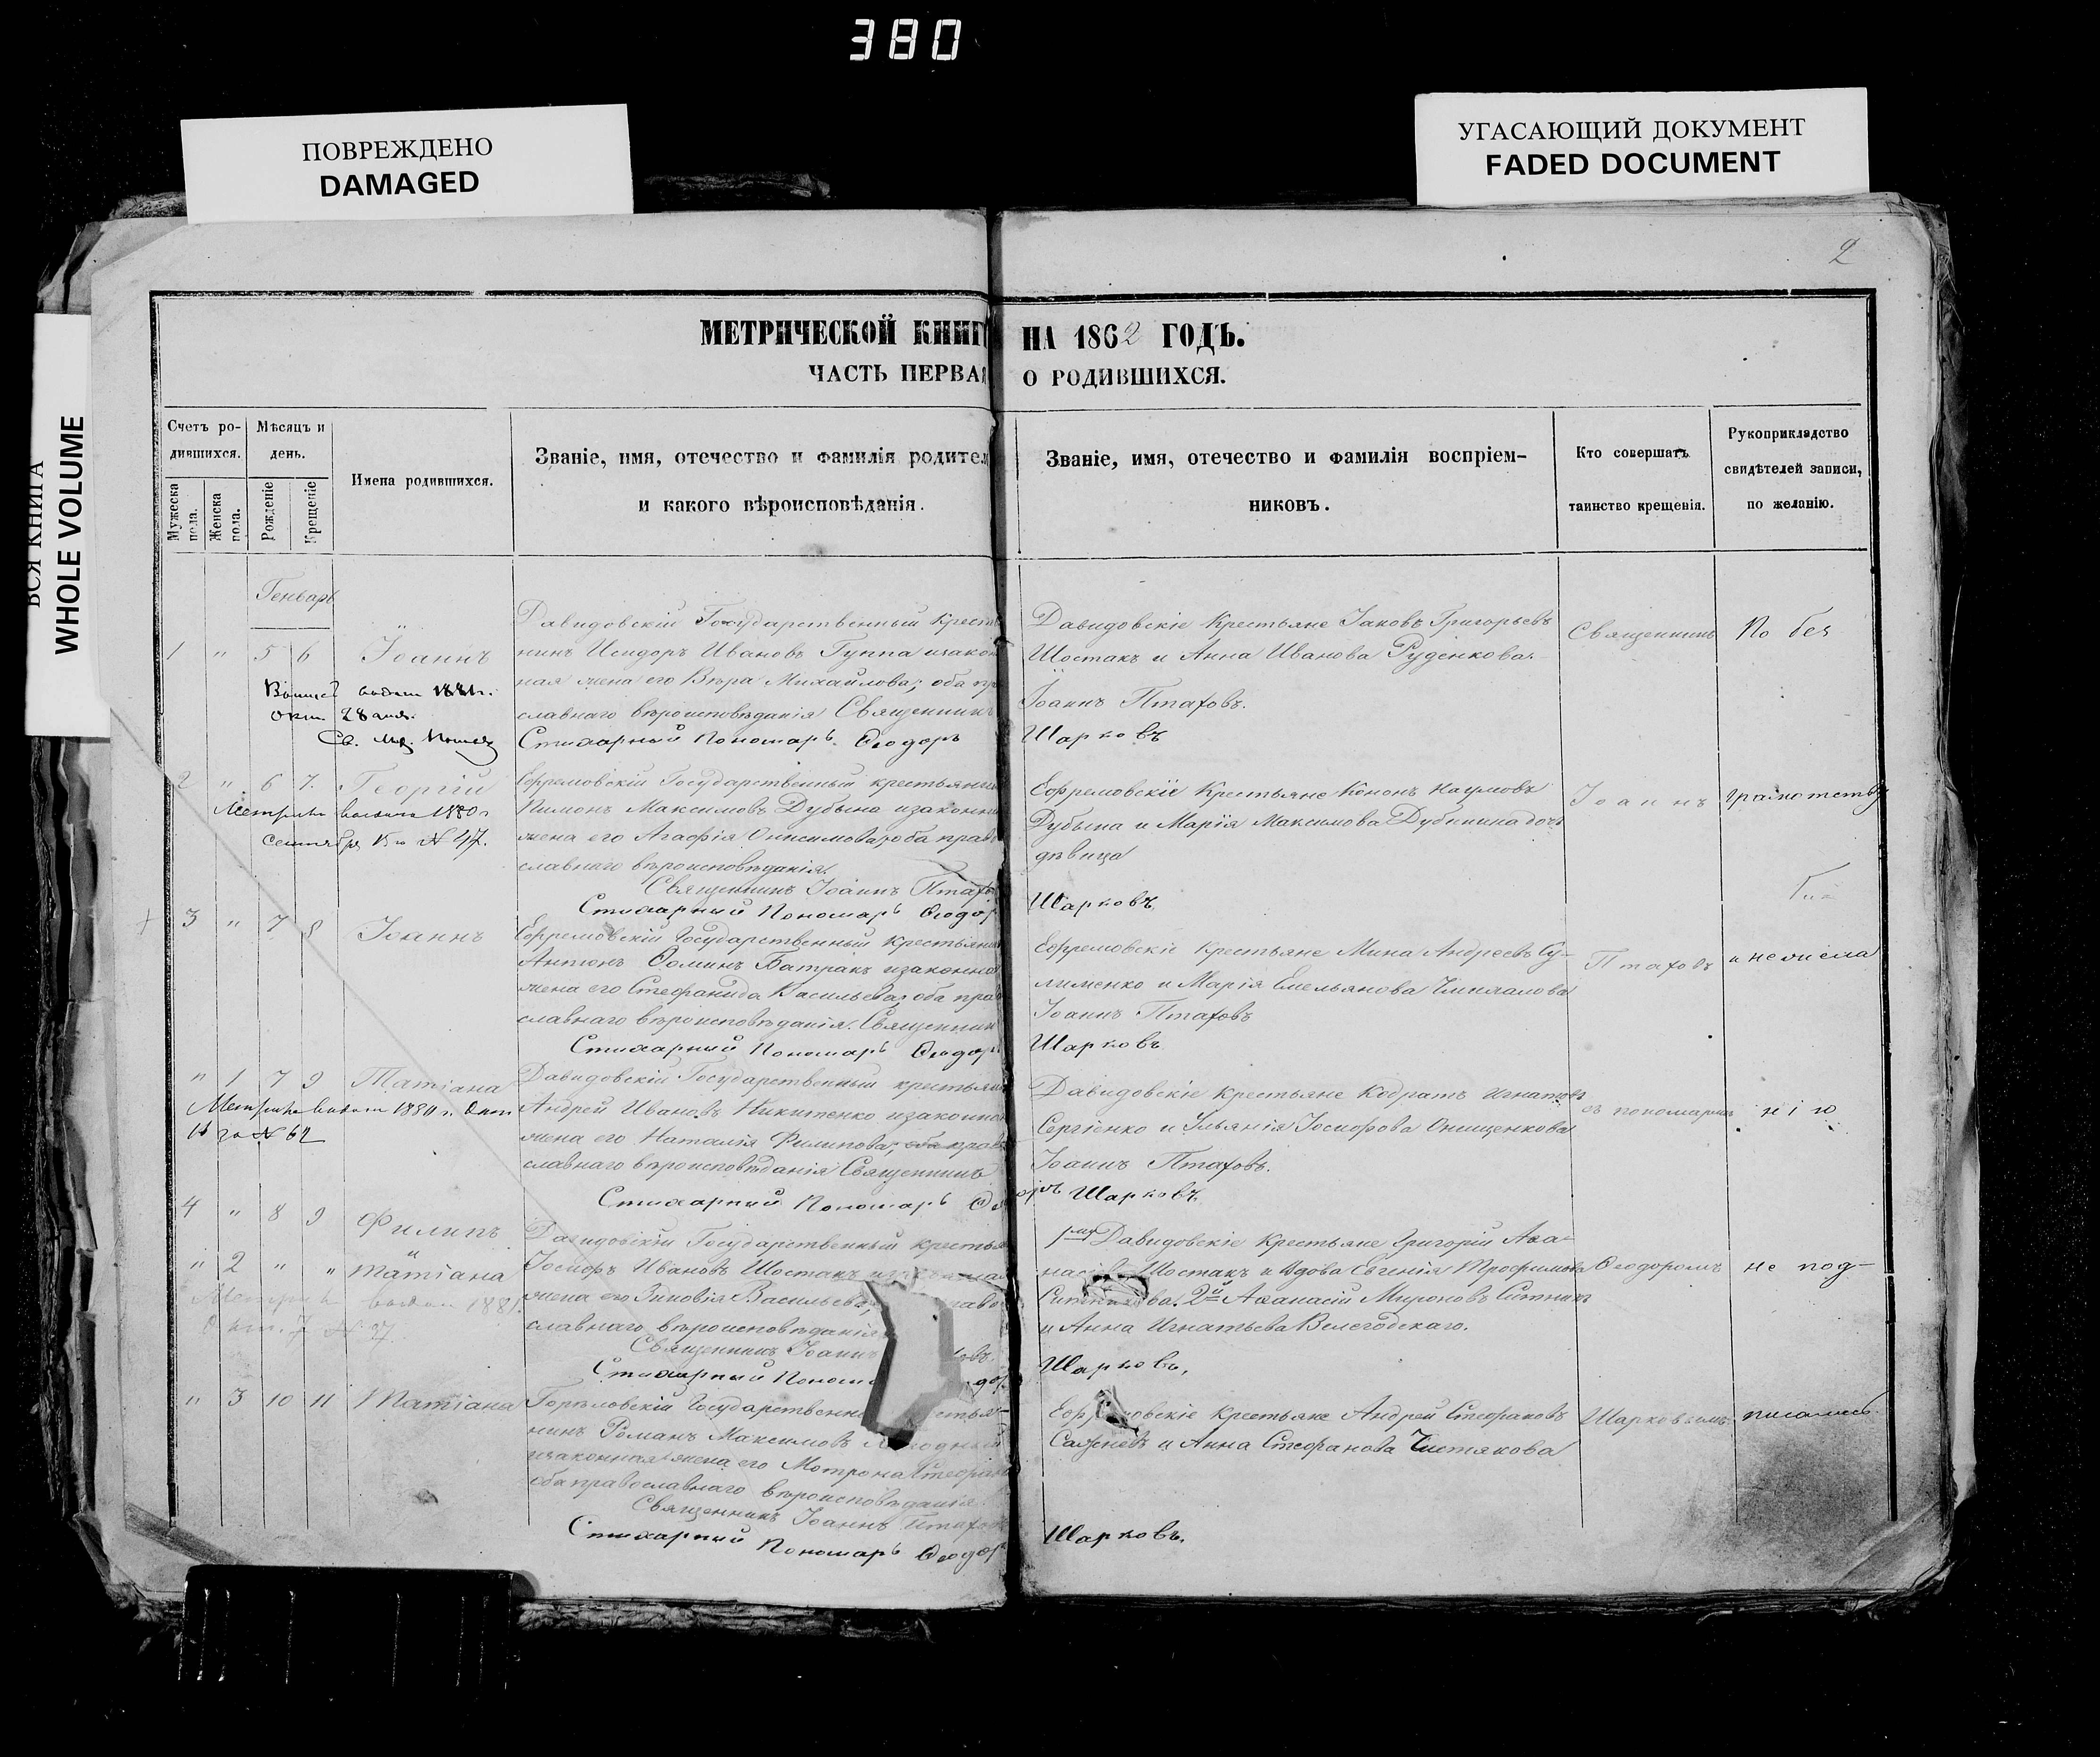 380
ПОВРЕЖДЕНО
DAMAGED
УГАСАЮЩИЙ ДОКУМЕНТ
FADED DOCUMENT
ВСЯ КНИГА
WHOLE VOLUME
2
МЕТРИЧЕСКОЙ КНИГ НА 1862 ГОДЪ.
ЧАСТЬ ПЕРВАЯ О РОДИВШИХСЯ.
Счетъ ро-
дившихся.
Мужеска пола.
Женска пола.
Мѣсяцъ и
день.
Рожденіе
Крещеніе
Имена родившихся.
Званіе, имя, отечество и фамилія родител
и какого вѣроисповѣданія.
Званіе, имя, отечество и фамилія воспріем-
никовъ.
Кто совершатъ
таинство крещенія.
Рукоприкладство
свидѣтелей записи,
по желанію.
Генварь
1 " 5 6 Іоаннъ
28
Давидовскій Государственный Кресть
нинъ Исидоръ Ивановъ Гуппа изакон
ная жена его Вѣра Михайлова; оба пр
славнаго вѣроисповѣданія Священникъ
Стихарный Пономарь Ѳеодоръ
Давидовскіе Крестьяне Іаковъ Григорьевъ
Шостакъ и Анна Иванова Руденкова.
Іоаннъ Птаховъ.
Шарковъ
Священникъ
По без
2 " 6 7. Георгій
Метрика 1880 г
сентября 15 го № 47.
Ефремовскій Государственный крестьянин
Пимонъ Максимовъ Дубына изаконная
жена его Агафія Онисимова; оба право
славнаго вѣроисповѣданія.
Священникъ Іоаннъ Птахо
Стихарный Пономарь Ѳеодор
Ефремовскіе Крестьяне Кононъ Наумовъ
Дубына и Марія Максимова Дубынина дочь
дѣвица
Шарковъ
Іоаннъ
грамотству
3 " 7 8 Іоаннъ
Ефремовскій Государственный крестьянин
Антонъ Ѳоминъ Батракъ изаконная
жена его Стефанида Васильева; оба прав
славнаго вѣроисповѣданія. Священник
Стихарный Пономарь Ѳеодор
Ефремовскіе Крестьяне Мина Андреевъ Су-
лименко и Марія Емельянова
Іоаннъ Птаховъ
Шарковъ
Птаховъ
" 1 7 9 Татіана
Метрика выдан 1880 г. Окт
№ 62
Давидовскій Государственный крестьян
Андрей Ивановъ Никитенко изаконная
жена его Наталія Филипова; оба прав
славнаго вѣроисповѣданія Священникъ
Стихарный Пономарь Ѳе
Давидовскіе Крестьяне Кодратъ Игнатовъ
Сергіенко и Ульянія Іосифова Онищенкова
Іоаннъ Птаховъ.
Шарковъ
съ пономаремъ
нію
4 " 8 9 Филипъ
" 2 " " Татіана
Метрика выдан 1881.
Окт. 7 № 27.
Давидовскій Государственный кресть
Іосифъ Ивановъ Шостакъ
жена его Зиновія Васильева;
славнаго вѣроисповѣданія.
Священникъ Іоаннъ
Стихарный Поном
1го Давидовскіе Крестьяне Григорій Аѳа-
Шостакъ и Вдова Евгенія Трофимова
2й Аѳанасій Мироновъ Ситникъ
и Анна Игнатьева Велегодскаго.
Шарковъ.
Ѳеодоромъ
не под-
" 3 10 11 Татіана
Государственн
нинъ Романъ Максимовъ
изаконная жена его Мотрона Стефан
оба православнаго вѣроисповѣданія.
Священникъ Іоаннъ Птахов
Стихарный Пономарь Ѳеодор
Крестьяне Андрей Стефановъ
и Анна Стефанова Чистякова
Шарковъ.
Шарковымъ
писались.